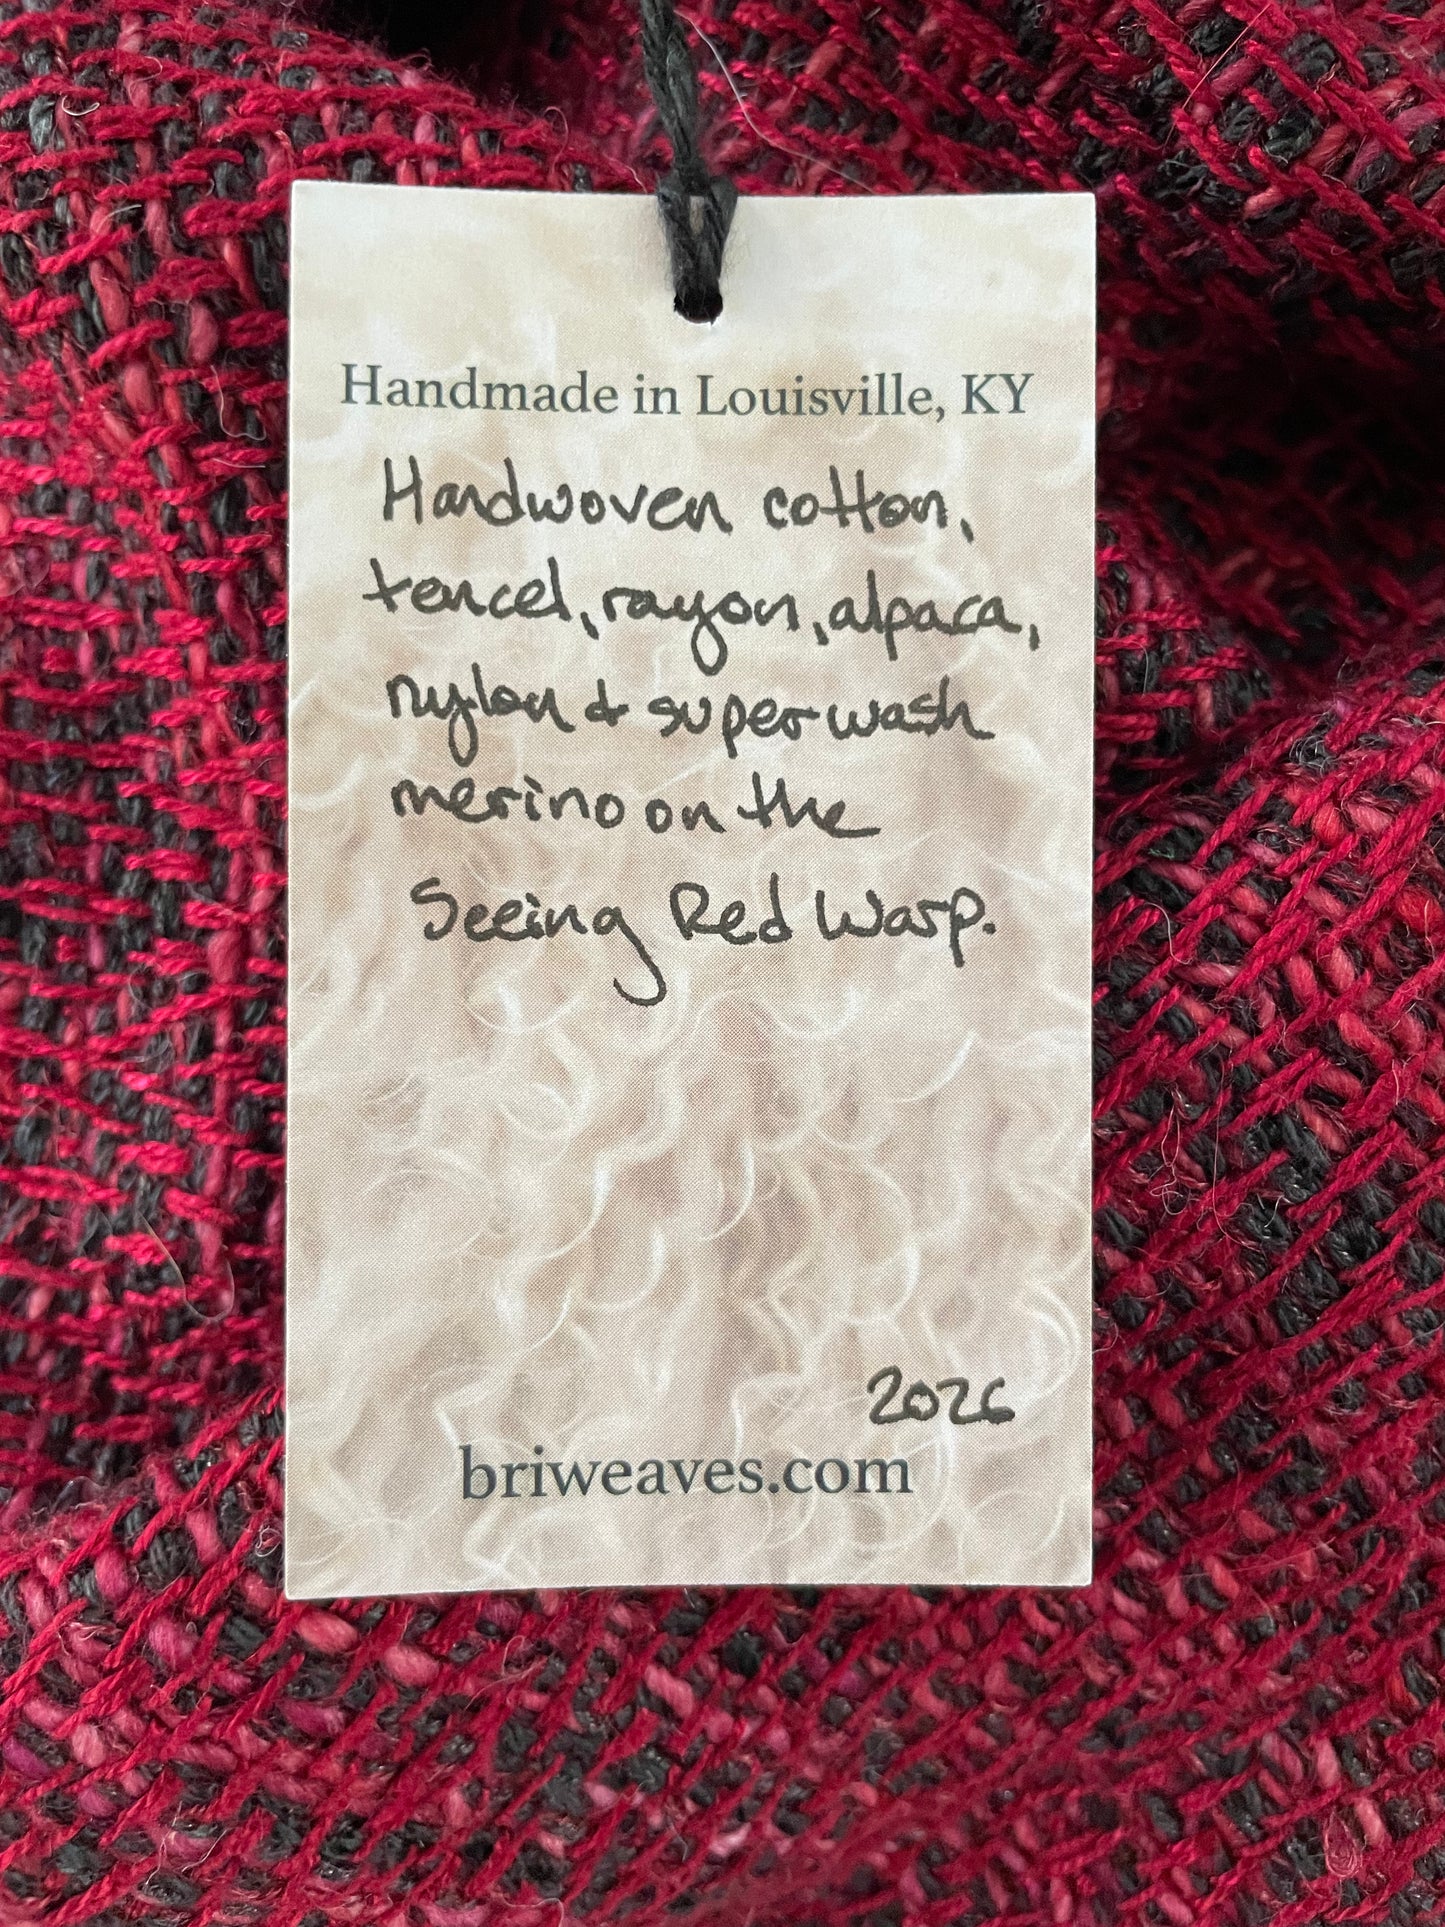 Handmade in Louisville, KY
Handwoven cotton,
tencel, rayon, alpaca,
nylon & superwash
merino on the
Seeing Red Warp.
2026
briweaves.com